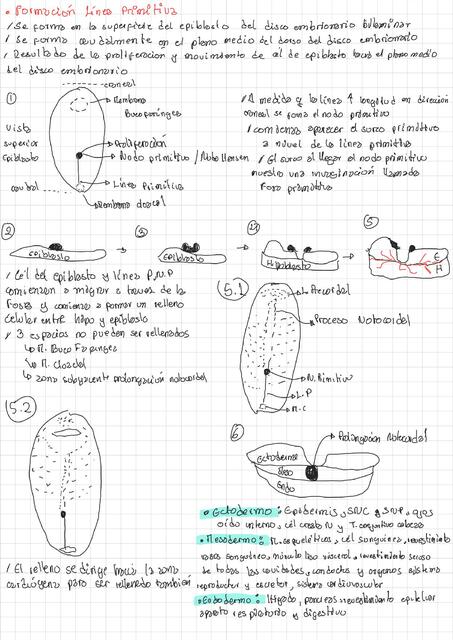 • Formación Línea Primitiva
/ Se forma en la superficie del epiblasto del disco embrionario Bilaminar
/ Se forma caudalmente en el plano medio del dorso del disco embrionario
/ Resultado de la proliferacion y movimiento de cél de epiblasto hacia el plano medio
del disco embrionario
①
craneal
Membrana
Bucofaríngea
Vista
superior
Epiblasto
Proliferación
Nodo primitivo / Nodo Hensen
Línea Primitiva
caudal
Membrana cloacal
/ A medida q la línea ↑ longitud en dirección
craneal se forma el nodo primitivo
/ comienza aparecer el surco primitivo
a nivel de la línea primitiva
/ El surco al llegar al nodo primitivo
muestra una invaginación llamada
Fosa primitiva
②
Epiblasto
Epiblasto
Hipoblasto
⑤
E
H
/ Cél del epiblasto y línea P, N.P
comienzan a migrar a traves de la
Fosa y comienza a formar un relleno
celular entre hipo y epiblasto
/ 3 espacios no pueden ser rellenados
↳ M. Buco Faringea
↳ M. Cloacal
↳ zona subyacente prolongación notocordal
5.1
L. Precordal
Proceso Notocordal
N. Primitivo
L.P
M.C
5.2
/ El relleno se dirige hacia la zona
cardiógena para ser rellenada también
⑥
Prolongación Notocordal
Ectodermo
Meso
Endo
• Ectodermo: Epidermis, SNC y SNP, ojos
oído interno, cél cresta N y T. conjuntivo cabeza
• Mesodermo: M. esqueléticos, cél sanguinea, revestimiento
vasos sanguíneos, músculo liso visceral, revestimiento seroso
de todas las cavidades, conductos y organos sistema
reproductor y excretor, sistema cardiovascular
• Endodermo: Hígado, páncreas, revestimiento epitelial
aparato respiratorio y digestivo